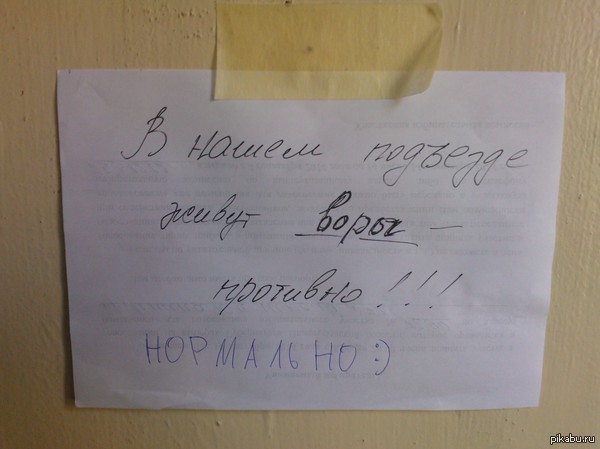 В нашем подъезде
живут воры –
противно!!!
НОРМАЛЬНО :)
pikabu.ru